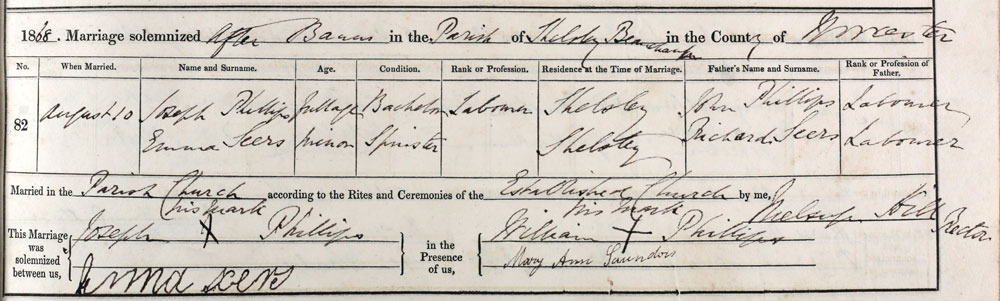 1868. Marriage solemnized after Banns in the Parish of Shelsley Beauchamp in the County of Worcester
No. When Married. Name and Surname. Age. Condition. Rank or Profession. Residence at the Time of Marriage. Father's Name and Surname. Rank or Profession of Father.
82 August 10 Joseph Phillips full age Bachelor Labourer Shelsley John Phillips Labourer
Emma Seers minor Spinster Shelsley Richard Seers Labourer
Married in the Parish Church according to the Rites and Ceremonies of the Established Church by me, Hill Rector
This Marriage was solemnized between us, Joseph his mark X Phillips
Emma Seers
in the Presence of us, William his mark + Phillips
Mary Ann Saunders